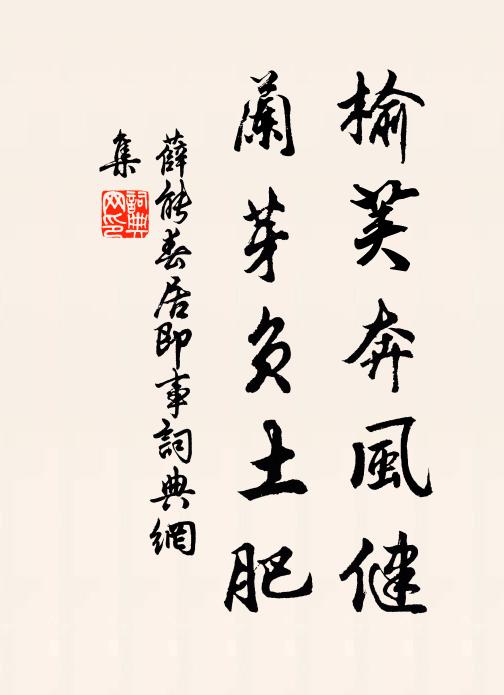 榆荚奔風健
蘭芽負土肥
薛能春居即事詞典網
集
詞典网印